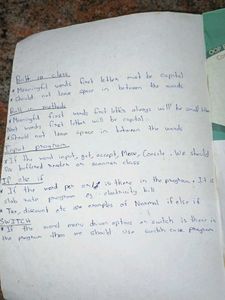 Built in class
• Meaningful words first letter must be capital
• Should not leave space in between the words
Built in methods
• Meaningful first words first letter always will be small then
Next words first letter will be capital
• Should not leave space in between the words
Input program
• If the word input, get, accept, Menu, Console. We should
Do buffered reader or scanner class
If else if
• If the word per only is there in the program. It is
slab rate program eg: electricity bill
• Tax, discount etc are examples of Normal if else if
SWITCH
• If the word menu driven option or switch is there in
the program then we should use switch case program